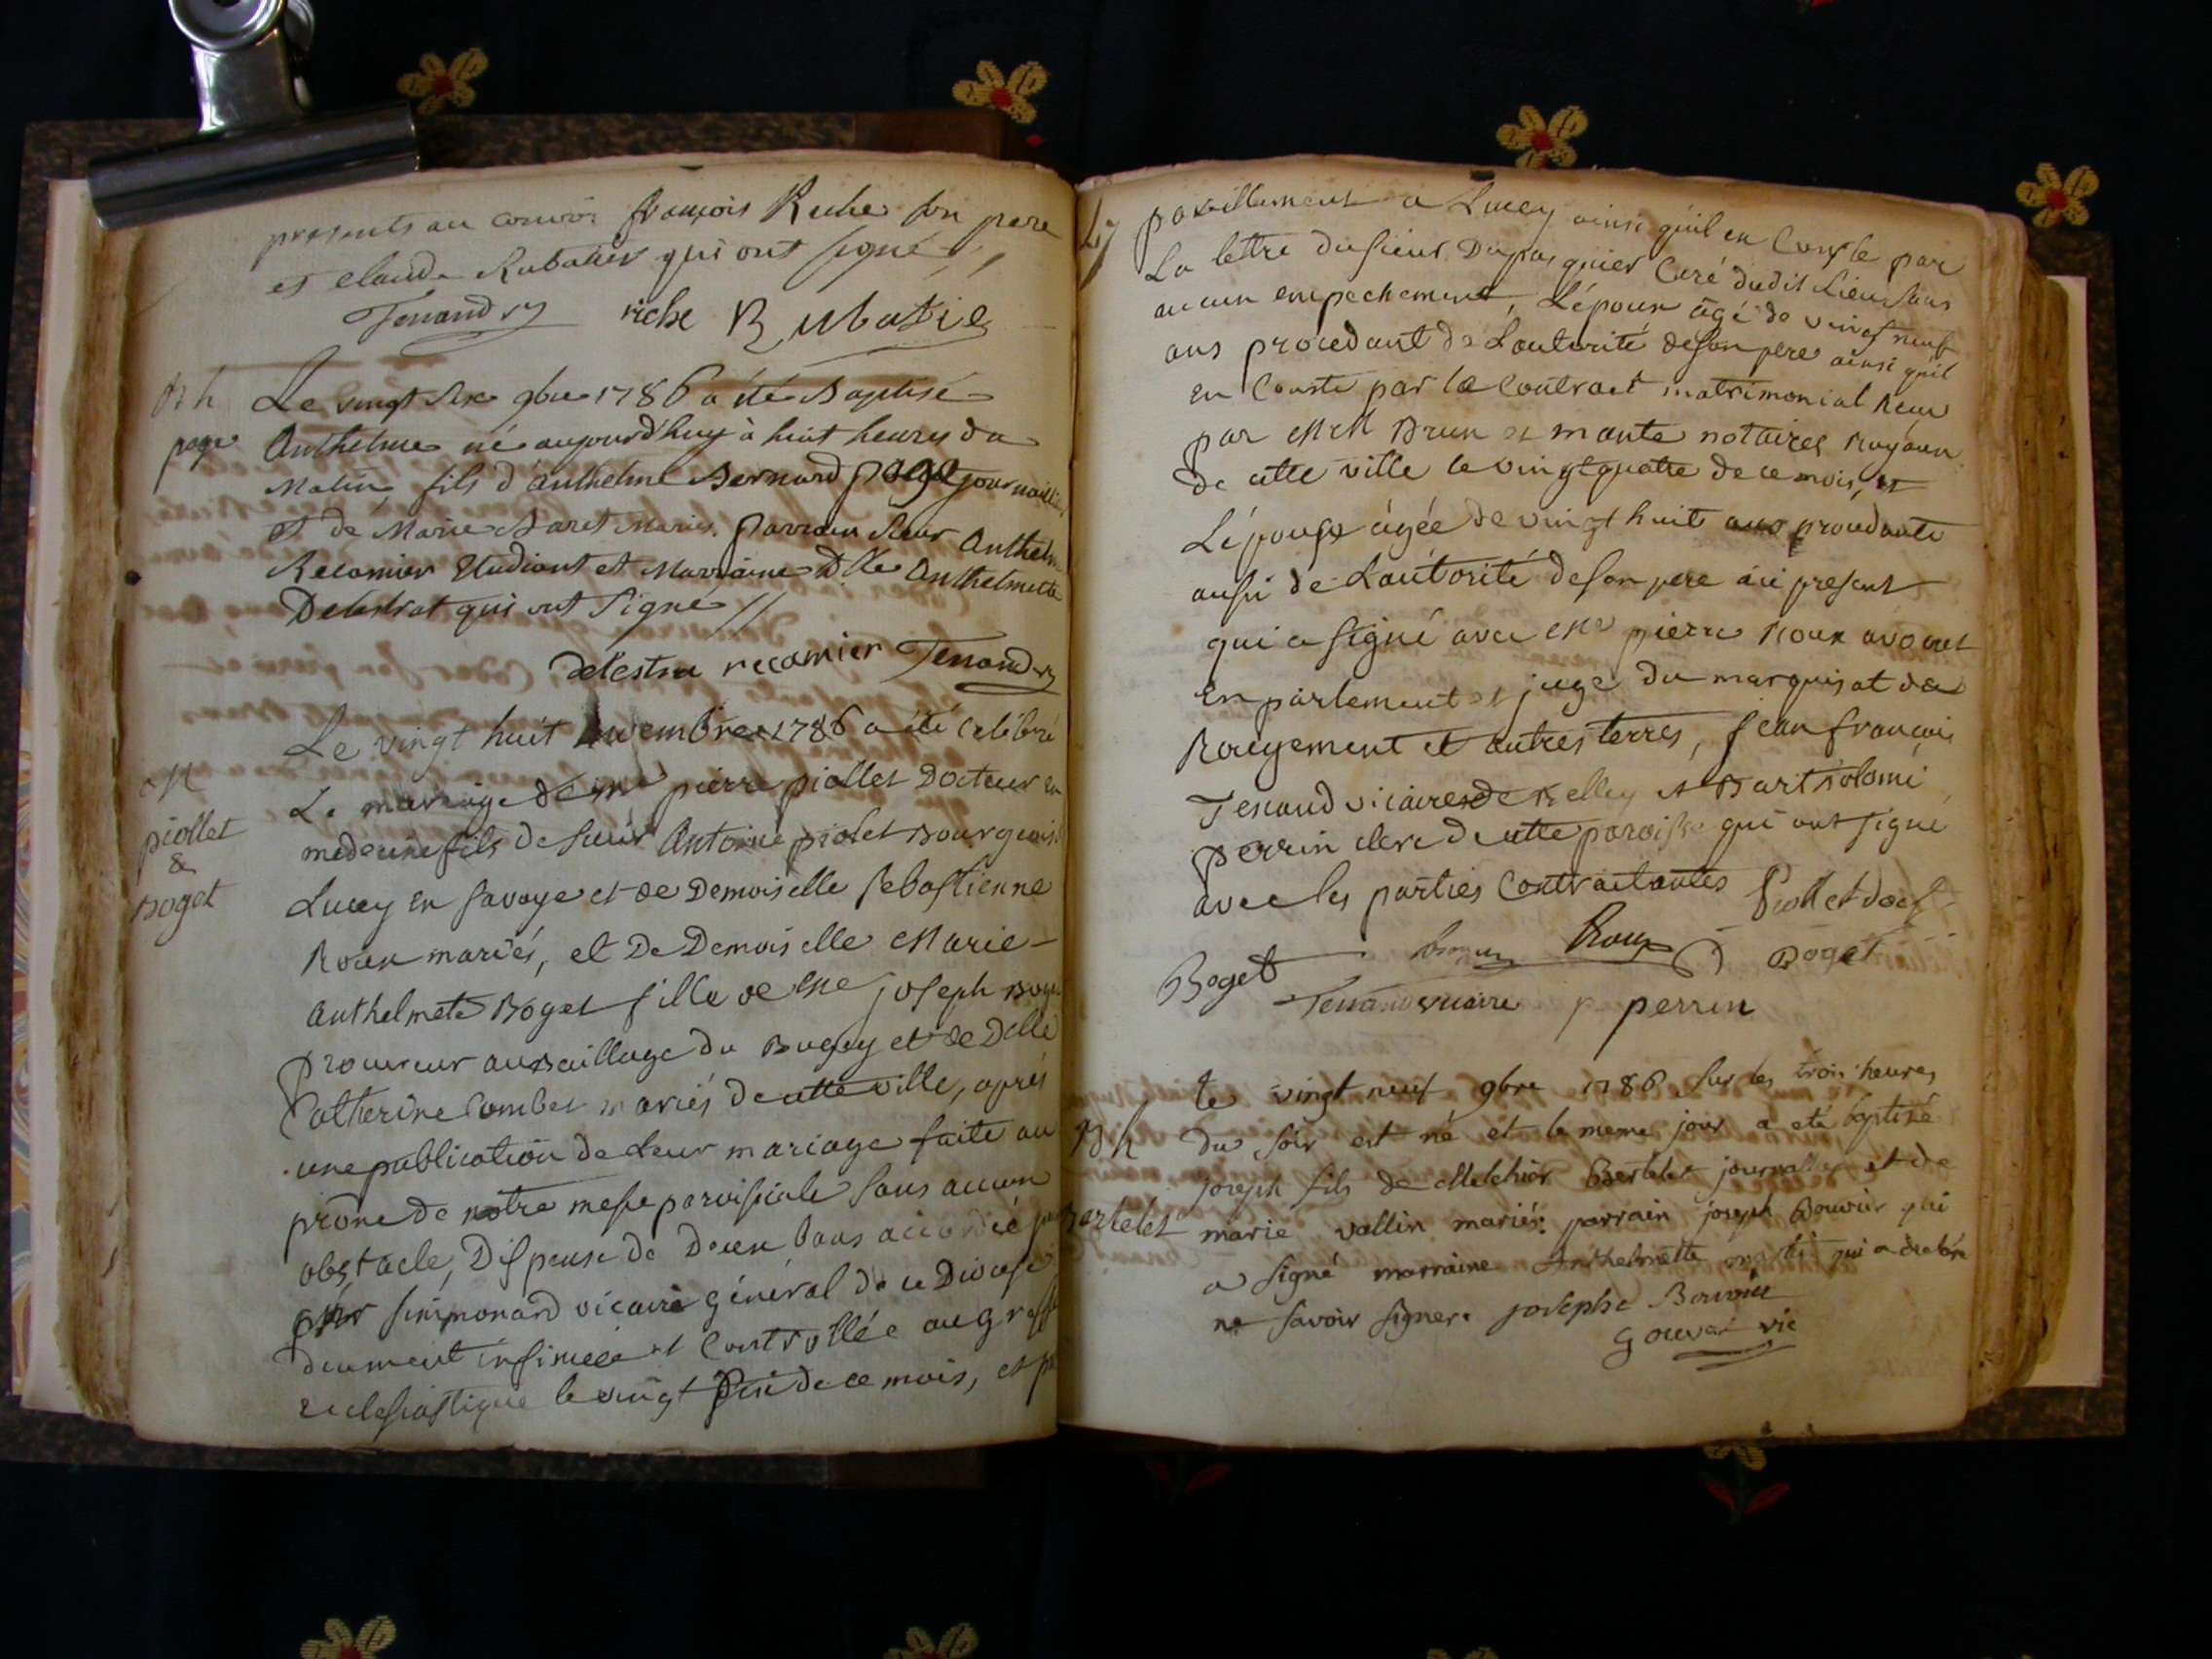 presents au convoi françois Riche son pere
et claude Rubatier qui ont signé //
Tenand vy riche Rubatié
B h
page
Le vingt six 9bre 1786 a été Baptisé
Anthelme né aujourd'huy à huit heures du
Matin fils d'anthelme Bernard page journaillier
et de Marie Baret Mariés. Parrain Sieur Anthelme
Recamier Etudiant et Marraine Dlle Anthelmette
Delestrat qui ont signé //
delestra recamier Tenand vy
M
piollet
&
Boget
Le vingt huit novembre 1786 a été celébré
Le mariage de me pierre piollet Docteur en
medecine fils de sieur Antoine piolet Bourgeois
Lucey en Savoye et de Demoiselle Sebastienne
Roux mariés, et De Demoiselle Marie
Anthelmete Boget fille de Me joseph Boget
procureur au Baillage du Bugey et de Dlle
Catherine Combet mariés de cette ville, aprés
une publication de Leur mariage faite au
prone de notre messe paroissiale sans aucun
obstacle, Dispense de Deux bans accordée par
simmonard vicaire général de ce Diocese
duement insinuée et Controllée au greffe
ecclesiastique le vingt six de ce mois, et
pareillement a Lucey ainsi qu'il en Conste par
La lettre du sieur Dupasquier Curé dudit Lieu sans
aucun empechement, L'époux âgé de vingt neuf
ans procedant de L'autorité de son pere ainsi qu'il
en Conste par le Contract matrimonial Reçu
par MM Brun et mante notaires Royaux
de cette ville le vingt quatre de ce mois, et
L'épouse âgée de vingt huit ans procedante
aussi de L'autorité de son pere aci present
qui a signé avec Me pierre Roux avocat
en parlement et juge du marquisat de
Rougemont et autres terres, jean françois
Tenand vicaire de Belley et Bartholomé
perrin clerc de cette paroisse qui ont signé
avec les parties Contractantes Piollet doct
Boget Roux Boget
Tenand vicaire p perrin
B h
Bertelet
Le vingt neuf 9bre 1786 sur les trois heures
du soir est né et le meme jour a eté baptisé
joseph fils de Melchior Bertelet journallier et de
marie vallin mariés: parrain joseph Bouvier qui
a signé marraine Anthelmette qui a declaré
ne savoir signer. josephe Bouvié
Gouvat vic